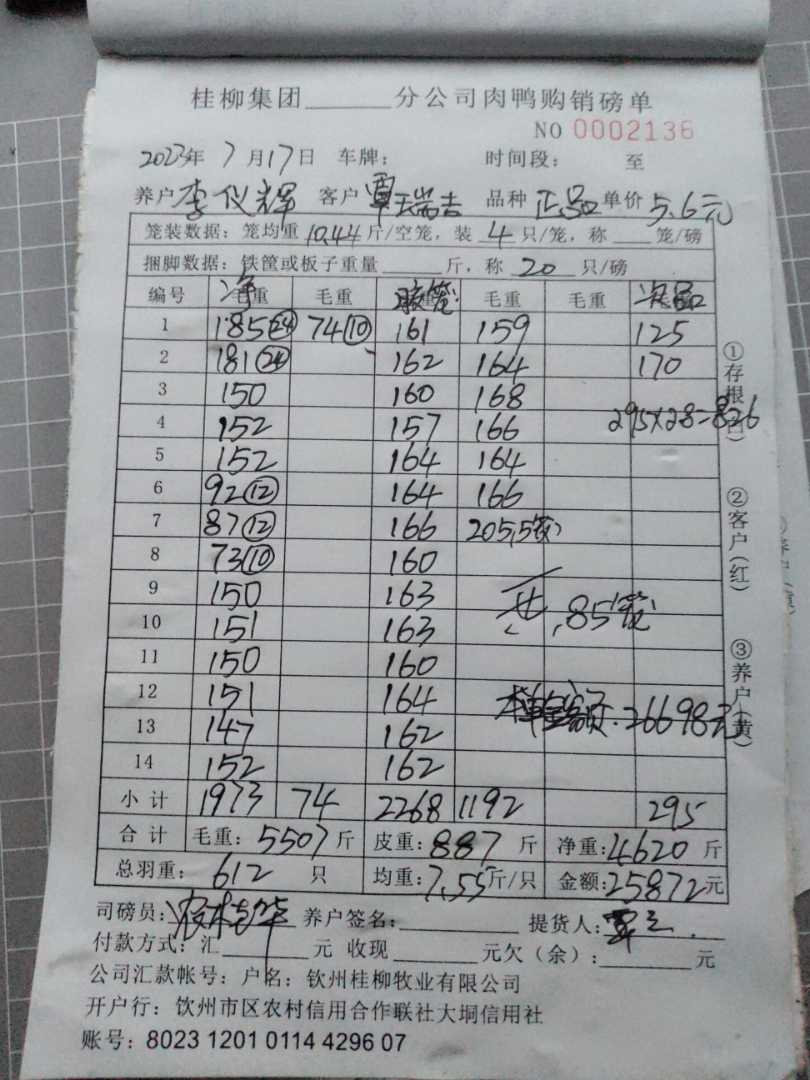 桂柳集团______分公司肉鸭购销磅单
NO 0002136
2023年 7 月 17 日 车牌: 时间段: 至
养户 李仪辉 客户 覃瑞吉 品种 正品 单价 5.6元
笼装数据: 笼均重 10.44 斤/空笼, 装 4 只/笼, 称 ___ 笼/磅
捆脚数据: 铁筐或板子重量 ______ 斤, 称 20 只/磅
编号 净重 毛重 胶笼 毛重 毛重 次品
1 185(24) 74(10) 161 159 125
2 181(24) 162 164 170
3 150 160 168
4 152 157 166 295×2.8=826
5 152 164 164
6 92(12) 164 166
7 87(12) 166 205(5笼)
8 73(10) 160
9 150 163 共 85笼
10 151 163
11 150 160
12 151 164 本单金额: 26698元
13 147 162
14 152 162
小计 1973 74 2268 1192 295
合计 毛重: 5507 斤 皮重: 887 斤 净重: 4620 斤
总羽重: 612 只 均重: 7.55 斤/只 金额: 25872 元
司磅员: 养户签名: 提货人:
付款方式: 汇______元 收现______元欠(余):______元
公司汇款帐号: 户名: 钦州桂柳牧业有限公司
开户行: 饮州市区农村信用合作联社大垌信用社
账号: 8023 1201 0114 4296 07
①存根(白)
②客户(红)
③养户(黄)